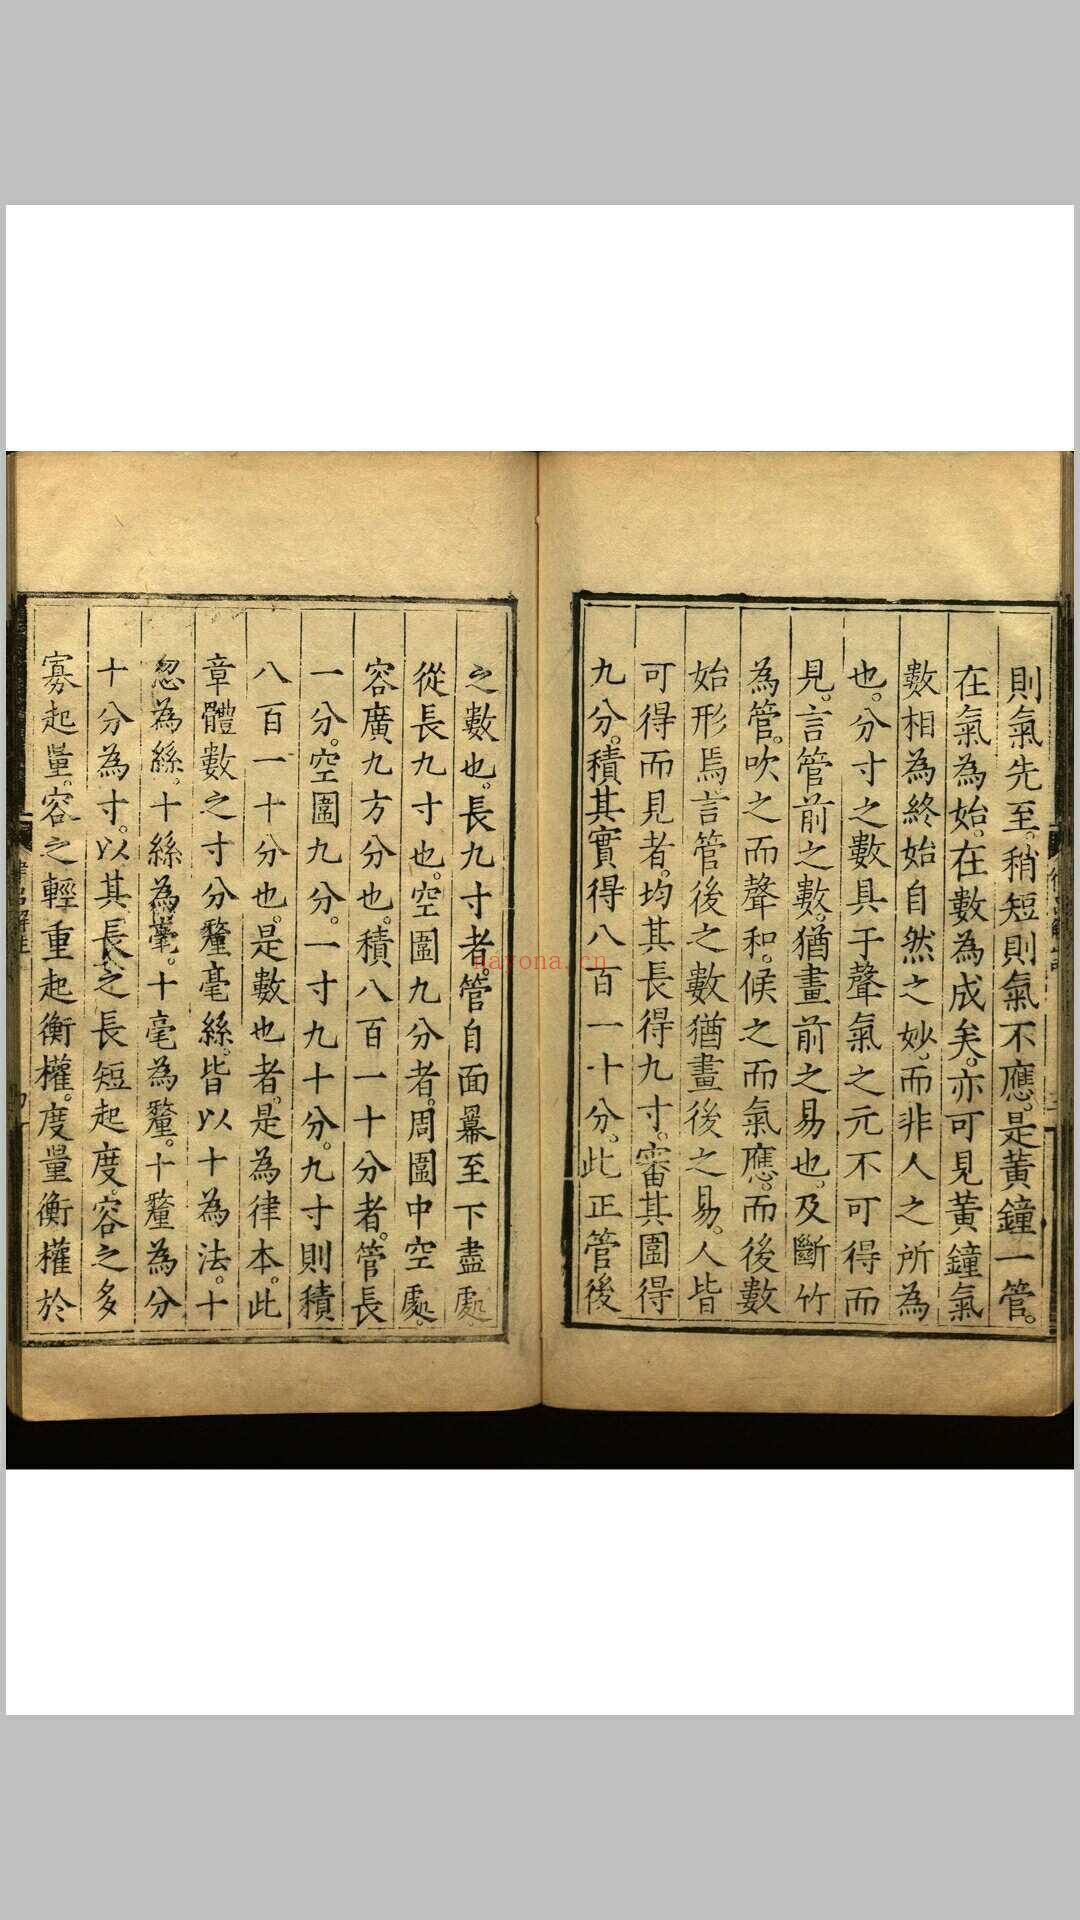 則氣先至。稍短則氣不應。是黃鐘一管。
在氣為始。在數為成矣。亦可見黃鐘氣
數相為終始自然之妙。而非人之所為
也。分寸之數具于聲氣之元不可得而
見。言管前之數。猶畫前之易也。及斷竹
為管。吹之而聲和。候之而氣應。而後數
始形焉言管後之數猶畫後之易。人皆
可得而見者。均其長得九寸。審其圍得
九分。積其實得八百一十分。此正管後
之數也。長九寸者。管自面冪至下盡處。
從長九寸也。空圍九分者。周圍中空處。
容廣九方分也。積八百一十分者。管長
一分。空圍九分。一寸九十分。九寸則積
八百一十分也。是數也者。是為律本。此
章體數之寸分釐毫絲。皆以十為法。十
忽為絲。十絲為毫。十毫為釐。十釐為分
十分為寸。以其長之長短起度。容之多
寡起量。容之輕重起衡權。度量衡權於
nayona.cn